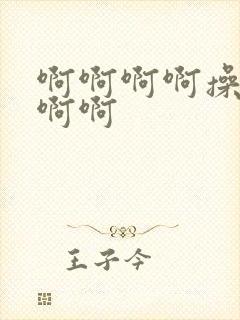 啊啊啊啊操
啊啊
王子今